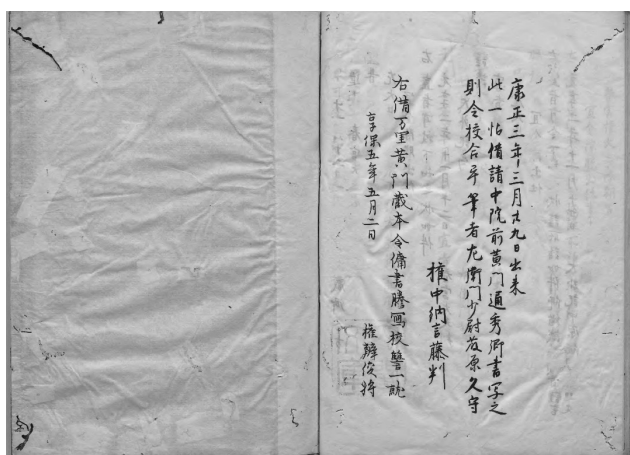 康正三年三月廿九日出来
此一帖借請中院前黄門通秀卿書写之
則令校合畢筆者左衛門少尉藤原久守
権中納言藤判
右借万里黄門蔵本令傭書謄写校讐一過
享保五年五月二日
権麟俊将